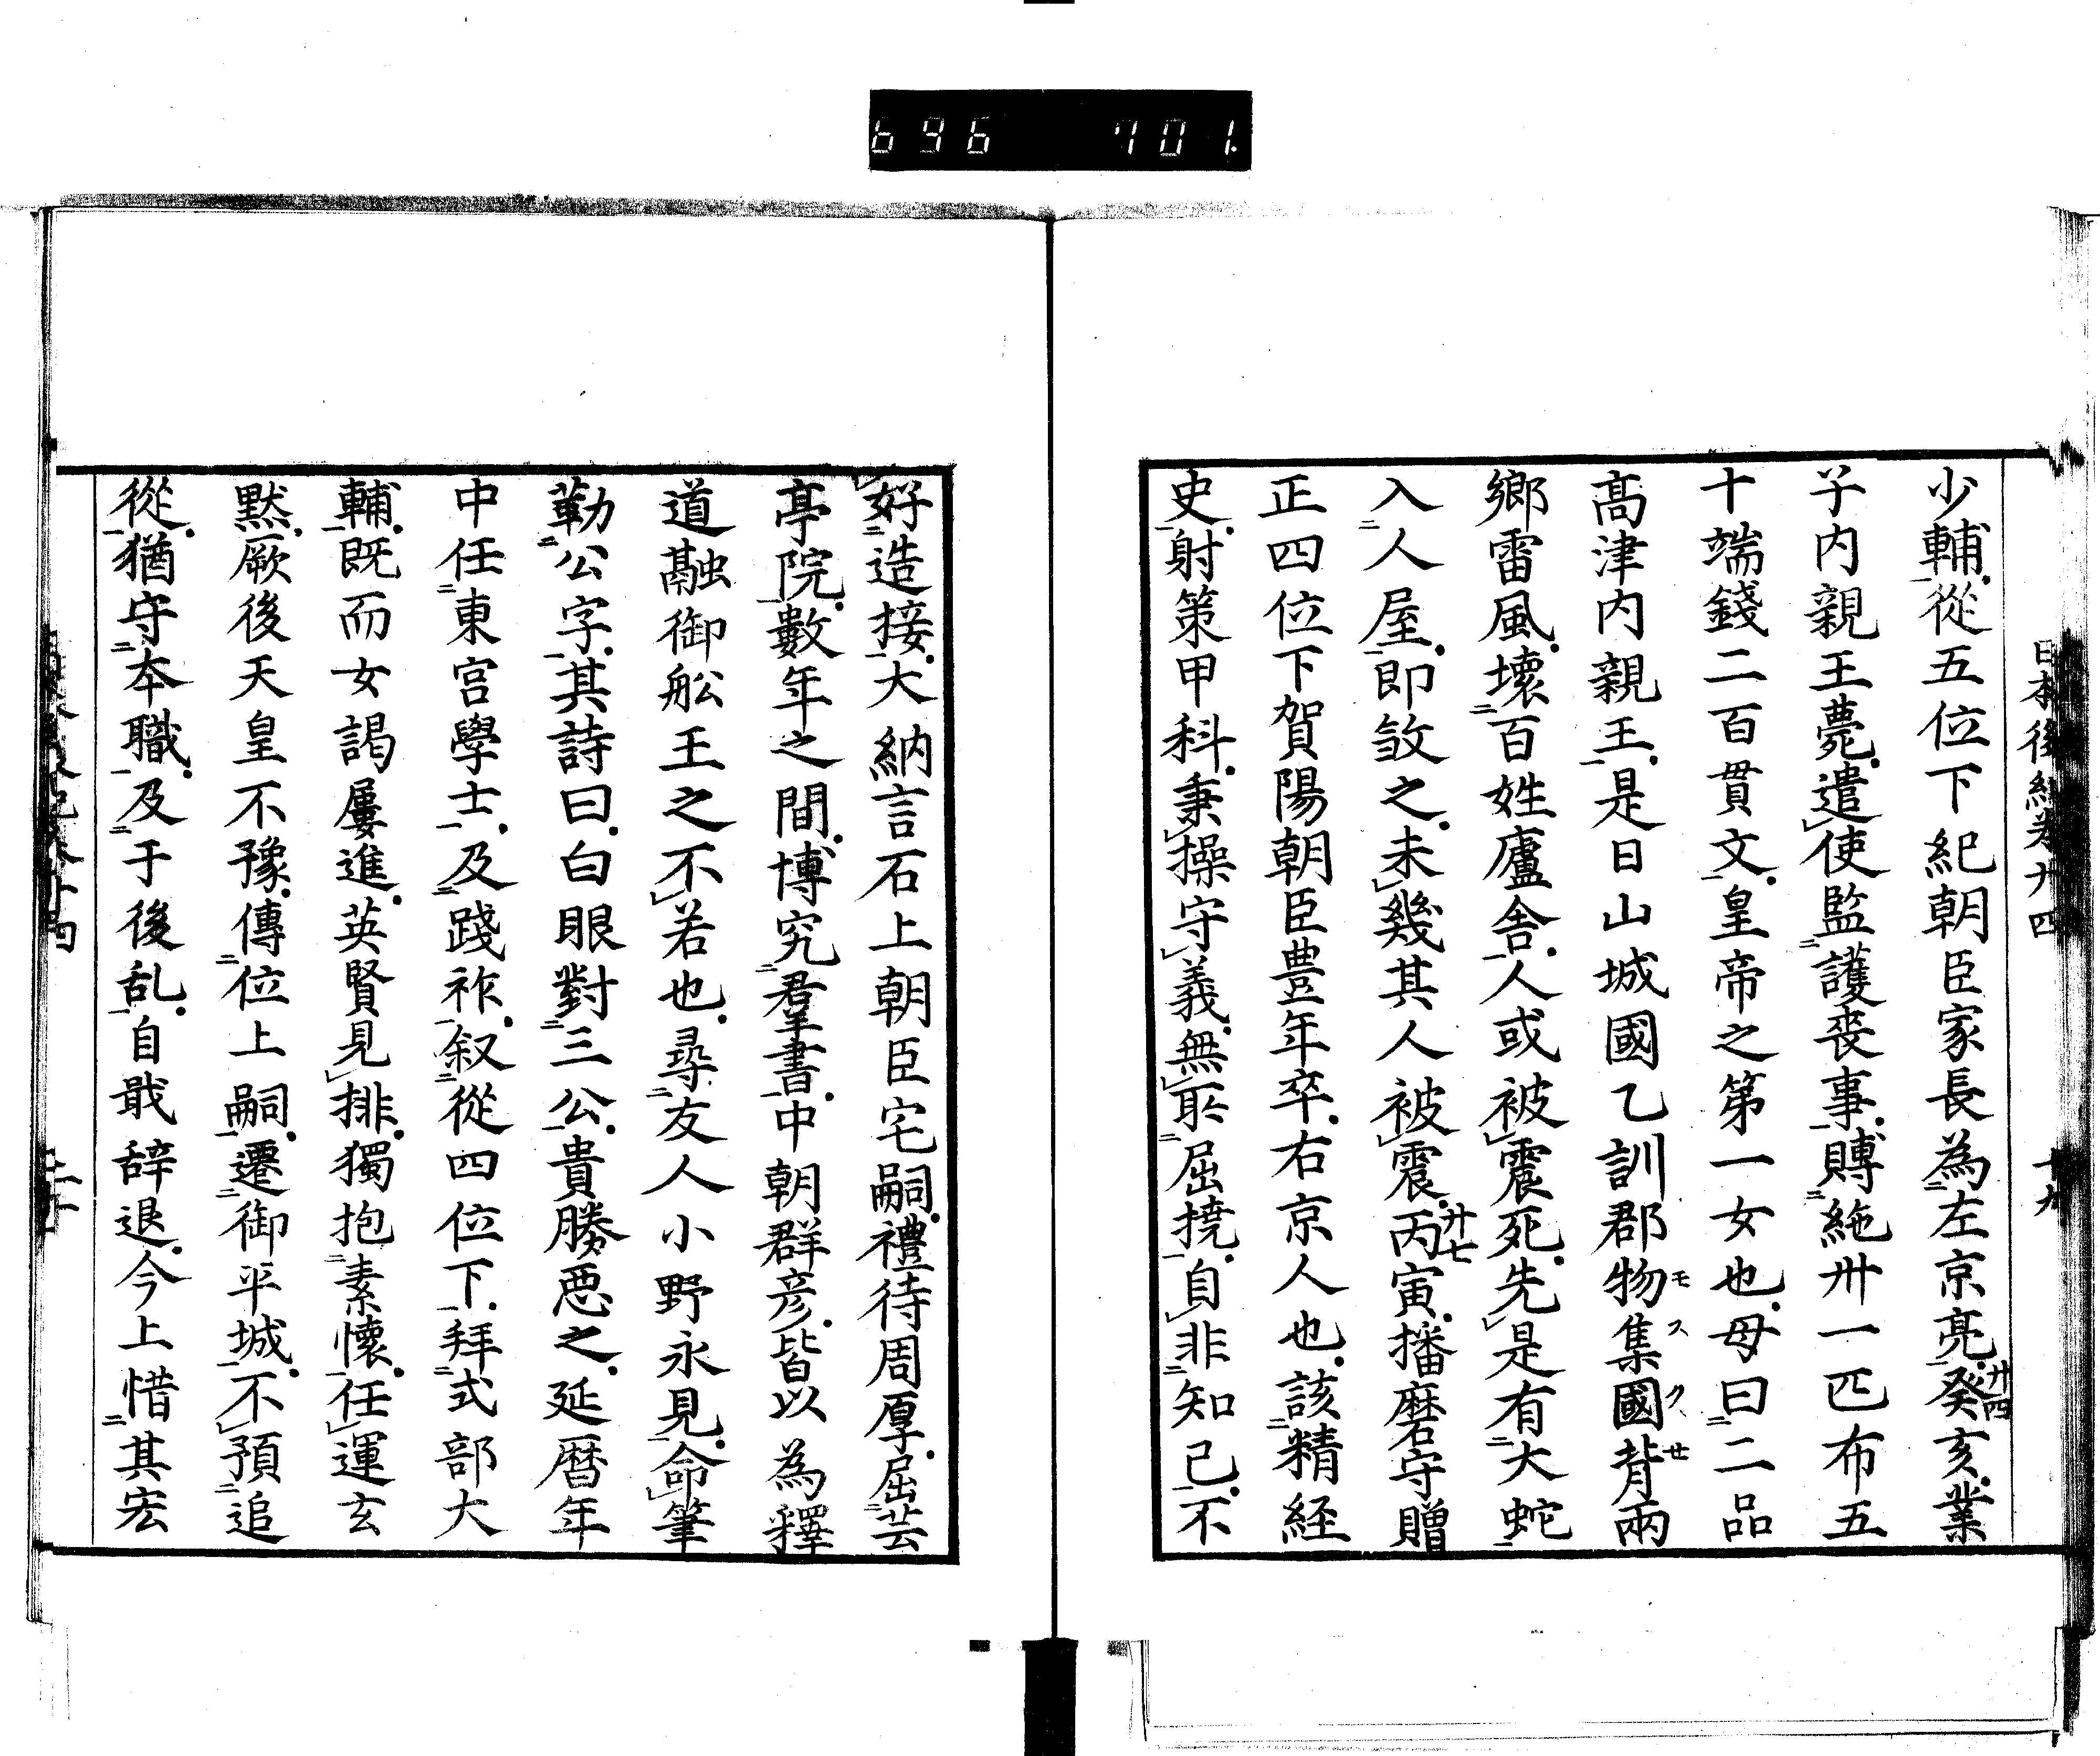 696 701.
日本後紀卷廿四 十九
少輔從五位下紀朝臣家長為左京亮癸亥業
廿四
子内親王薨遣使監護喪事賻絁卅一匹布五
十端錢二百貫文皇帝之第一女也母曰二品
髙津内親王是日山城國乙訓郡物集國背兩
モ ス ク セ
鄉雷風壞百姓廬舎人或被震死先是有大蛇
入人屋即敛之未幾其人被震丙寅播磨守贈
廿七
正四位下賀陽朝臣豊年卒右京人也該精経
史射策甲科秉操守義無所屈撓自非知己不
好造接大納言石上朝臣宅嗣禮待周厚屈芸
亭院數年之間博究羣書中朝群彦皆以為釋
道融御舩王之不若也尋友人小野永見命筆
勒公字其詩曰白眼對三公貴勝悪之延暦年
中任東宮學士及踐祚叙從四位下拜式部大
輔既而女謁屢進英賢見排獨抱素懷任運玄
黙厥後天皇不豫傳位上嗣遷御平城不預追
從猶守本職及于後乱自戢辞退今上惜其宏